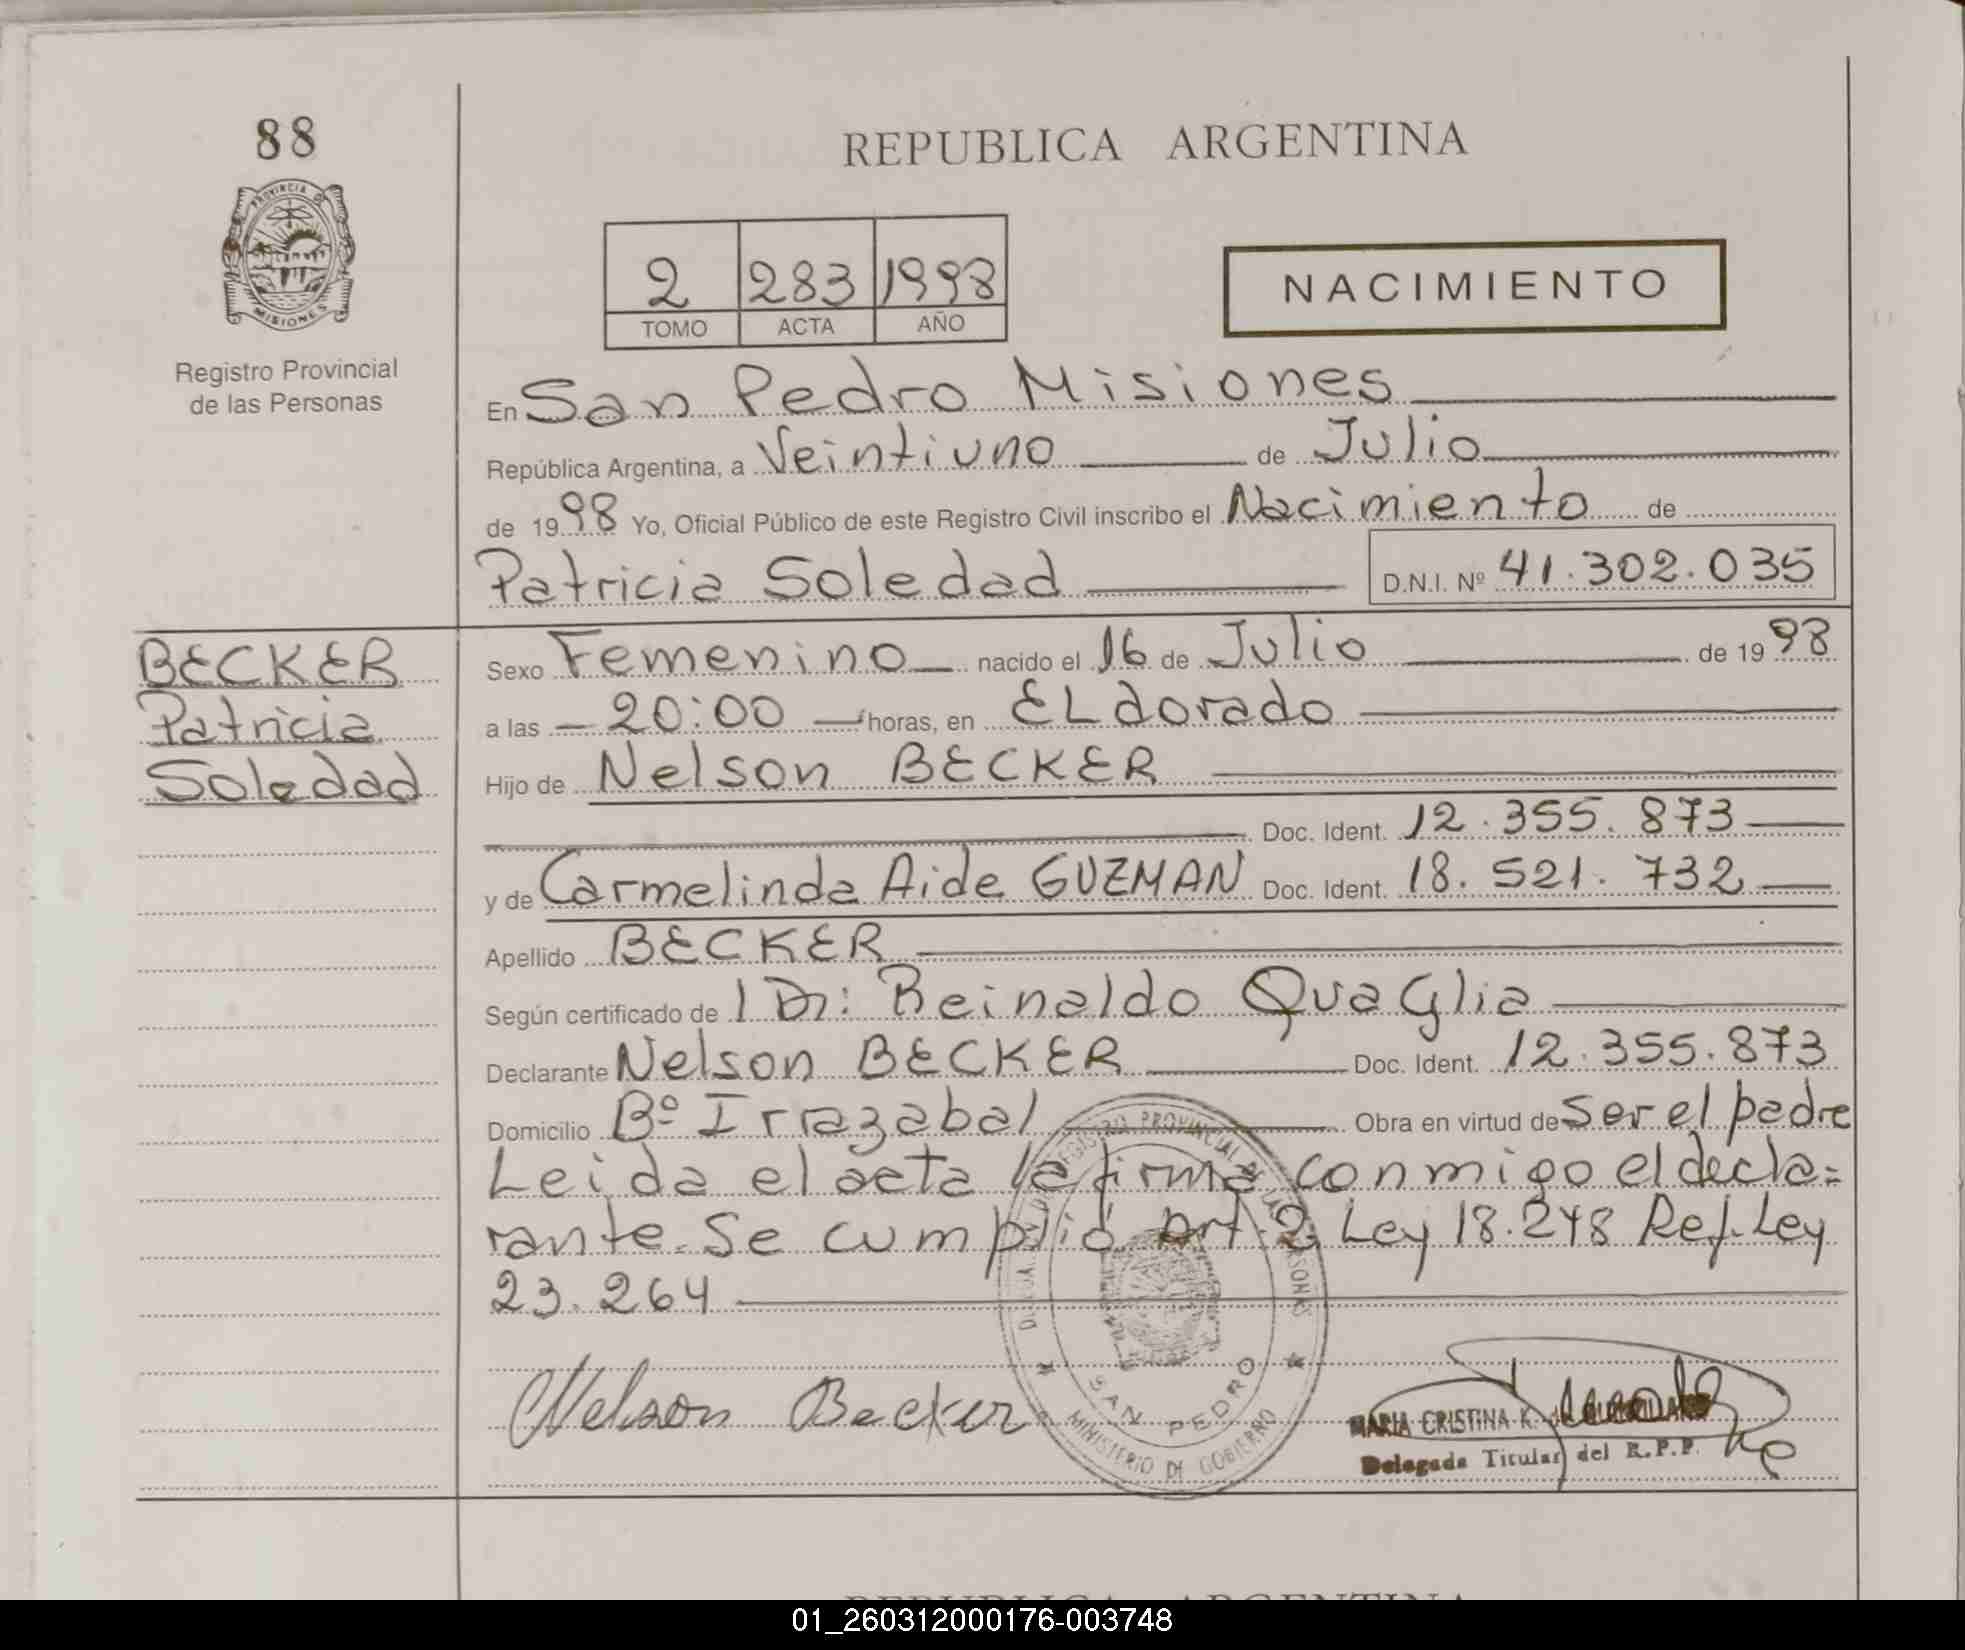 88
REPUBLICA ARGENTINA
PROVINCIA DE
MISIONES
Registro Provincial
de las Personas
2 283 1998
TOMO ACTA AÑO
NACIMIENTO
En San Pedro Misiones
República Argentina, a Veintiuno de Julio
de 1998 Yo, Oficial Público de este Registro Civil inscribo el Nacimiento de
Patricia Soledad D.N.I. Nº 41.302.035
BECKER
Patricia
Soledad
Sexo Femenino nacido el 16 de Julio de 1998
a las 20:00 horas, en ELdorado
Hijo de Nelson BECKER
Doc. Ident. 12.355.873
y de Carmelinda Aide GUZMAN Doc. Ident. 18.521.732
Apellido BECKER
Según certificado de 1 Dr: Reinaldo QuaGlia
Declarante Nelson BECKER Doc. Ident. 12.355.873
Domicilio Bº Irrazabal Obra en virtud de ser el padre
Leida el acta la firma conmigo el decla=
rante. Se cumplió art. 2 Ley 18.248 Ref. Ley
23.264
Nelson Becker
REGISTRO PROVINCIAL DE LAS PERSONAS
SAN PEDRO
MINISTERIO DE GOBIERNO
MARIA CRISTINA K.
Delegada Titular del R.P.P.
REPUBLICA ARGENTINA
01_260312000176-003748